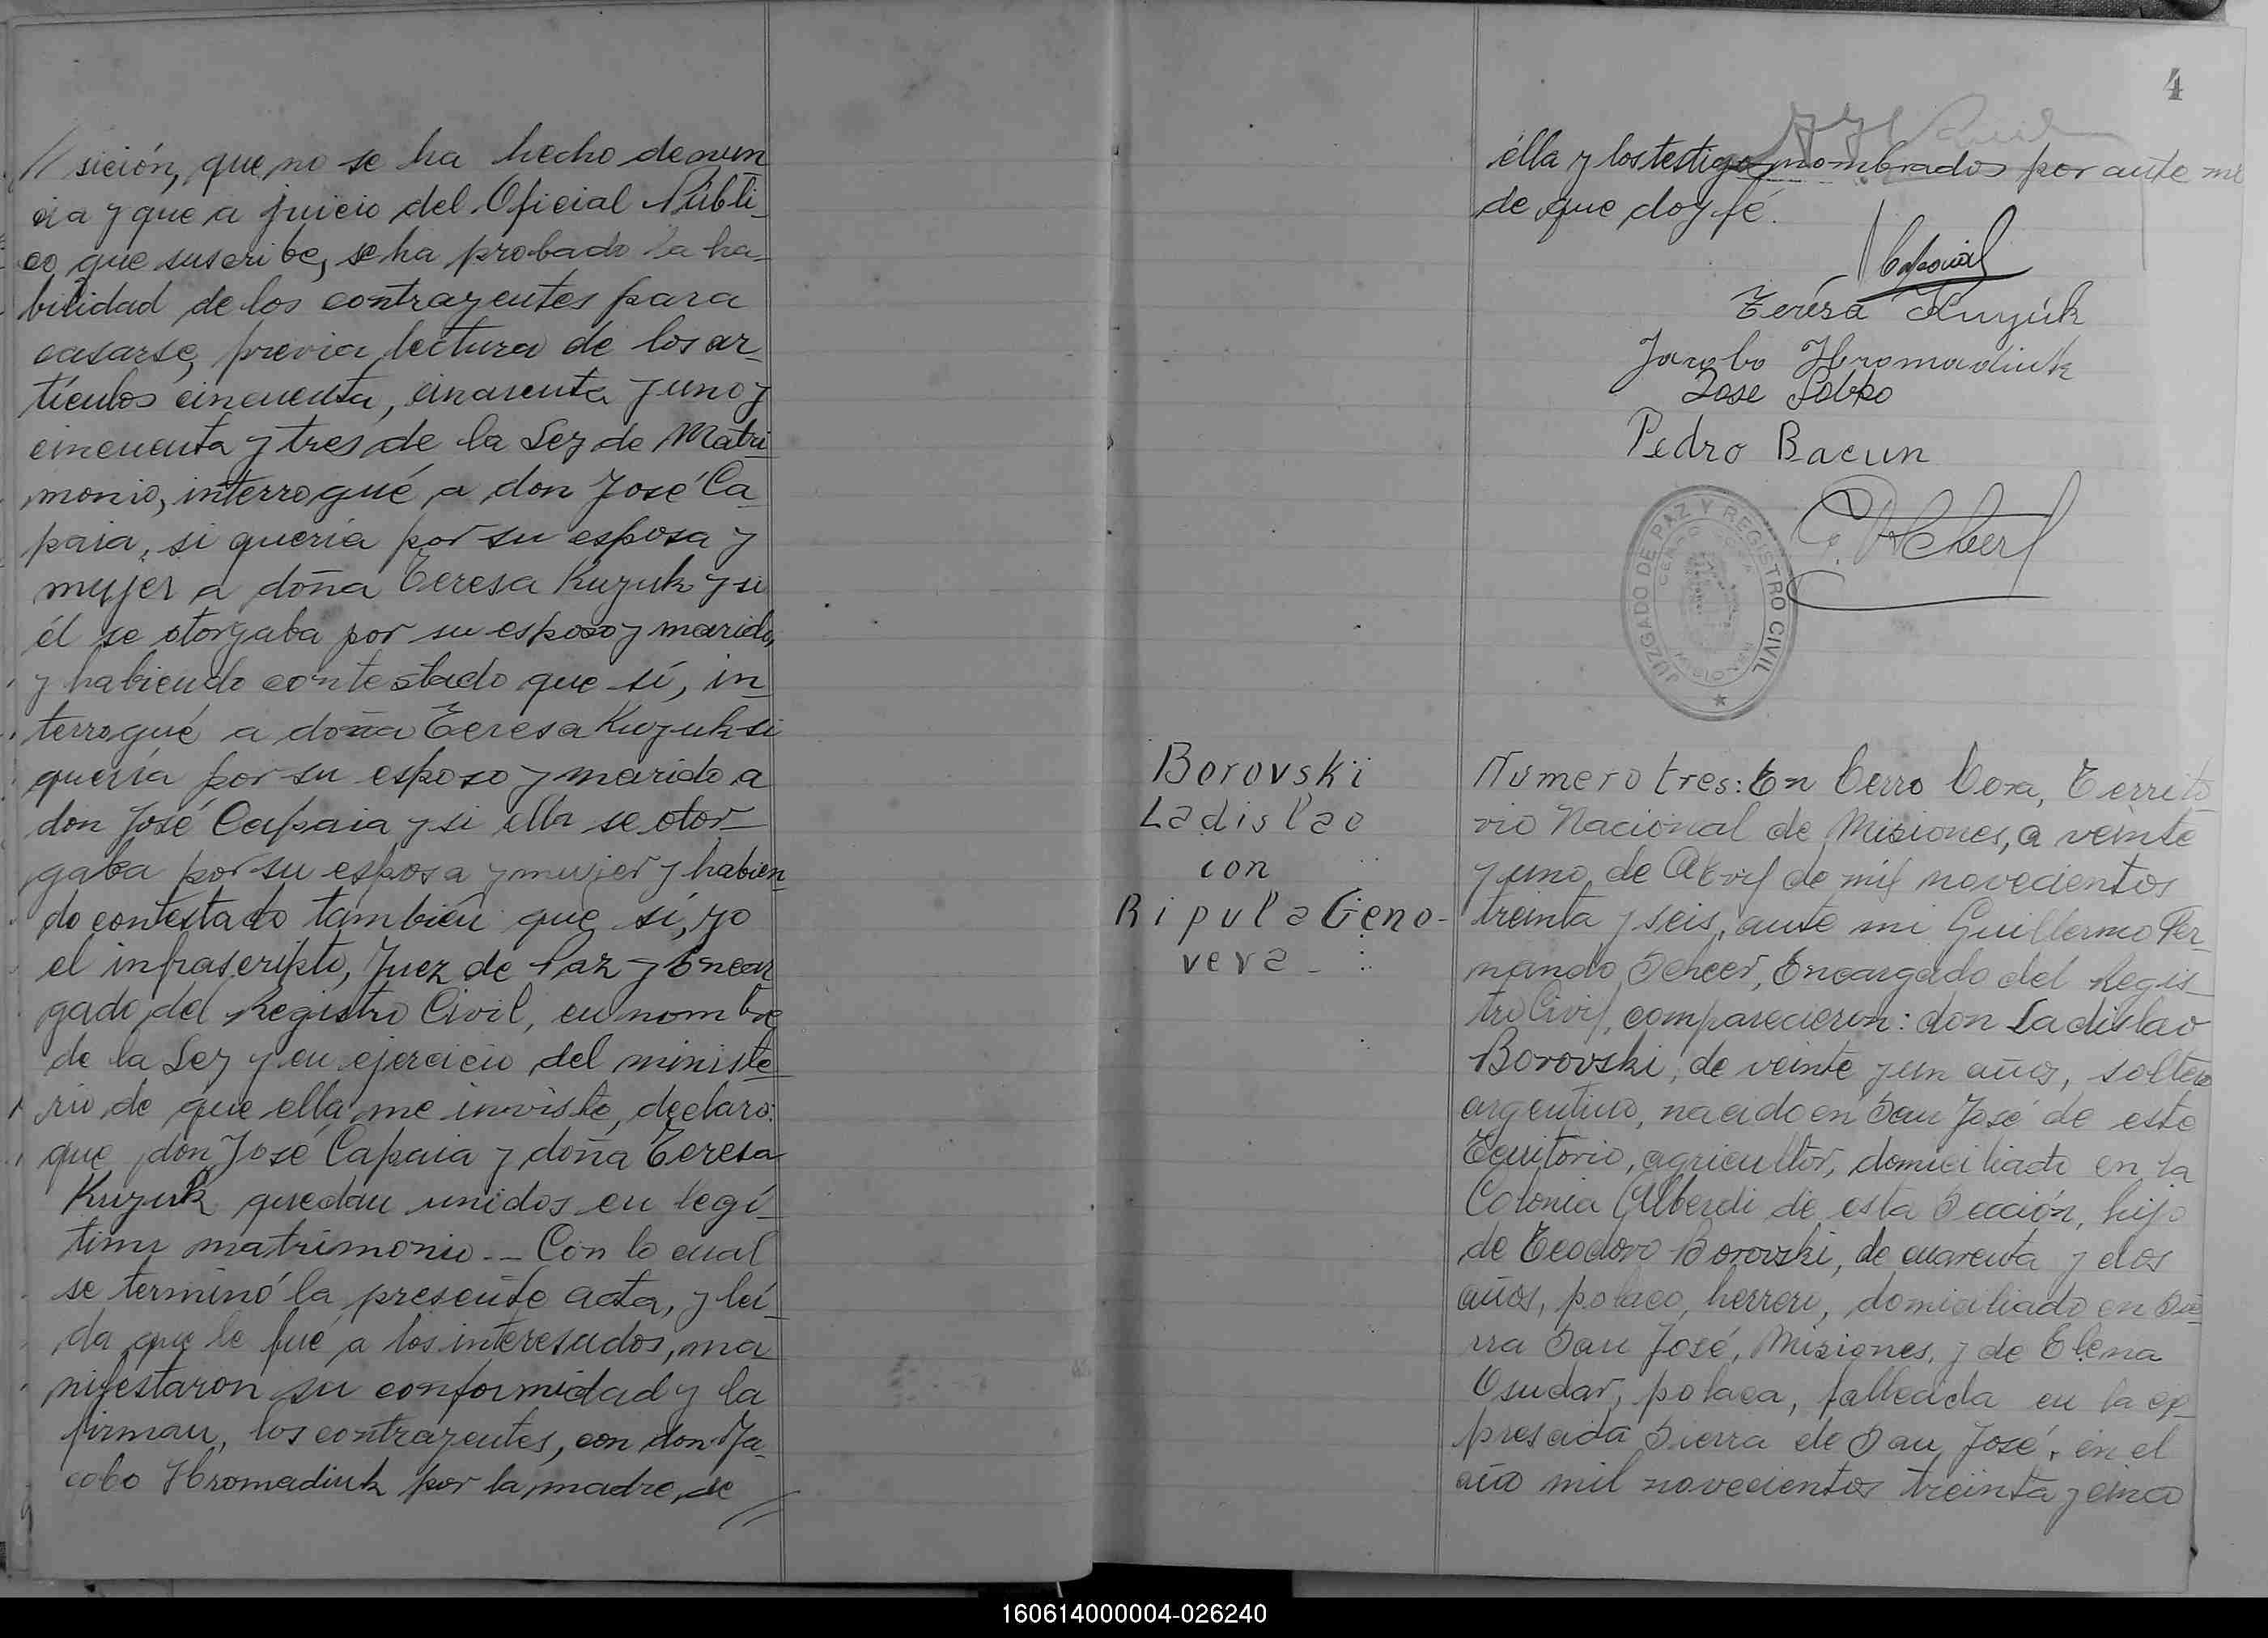 // sición, que no se ha hecho denun
cia y que a juicio del Oficial Públi-
co que suscribe, se ha probado la ha-
bilidad de los contrayentes para
casarse, previa lectura de los ar-
tículos cincuenta, cincuenta y uno y
cincuenta y tres de la Ley de Matri
monio, interrogué a don José Ca-
paia, si quería por su esposa y
mujer a doña Teresa Kuzuk y si
él se otorgaba por su esposo y marido,
y habiendo contestado que sí, in-
terrogué a doña Teresa Kuzuk si
quería por su esposo y marido a
don José Capaia y si ella se otor-
gaba por su esposa y mujer y habien-
do contestado también que sí, yo
el infrascripto, Juez de Paz y Encar
gado del Registro Civil, en nombre
de la Ley y en ejercicio del ministe-
rio de que ella me inviste, declaro:
que don José Capaia y doña Teresa
Kuzuk quedan unidos en legí-
timo matrimonio.-- Con lo cual
se terminó la presente acta, y leí-
da que le fué a los interesados, ma-
nifestaron su conformidad y la
firman, los contrayentes, con don Ja-
cobo Hromadiuk por la madre, de //
4
élla y los testigos nombrados por ante mí
de que doy fé.
Teresa Kuzúk
Jacobo Hromadiuk
Jose Sobko
Pedro Bacun
JUZGADO DE PAZ Y REGISTRO CIVIL
MISIONES
Borovski
Ladislao
con
Ripula Geno-
veva-
Número tres: En Cerro Cora, Territo
rio Nacional de Misiones, a veinte
y uno de Abril de mil novecientos
treinta y seis, ante mi Guillermo Fer-
nando Scheer, Encargado del Regis-
tro Civil, comparecieron: don Ladislao
Borovski, de veinte y un años, soltero
argentino, nacido en San José de este
Territorio, agricultor, domiciliado en la
Colonia Alberdi de esta Sección, hijo
de Teodoro Borovski, de cuarenta y dos
años, polaco, herrero, domiciliado en Sie-
rra San José, Misiones, y de Elena
Osudar, polaca, fallecida en la ex-
presada Sierra de San José, en el
año mil novecientos treinta y cinco